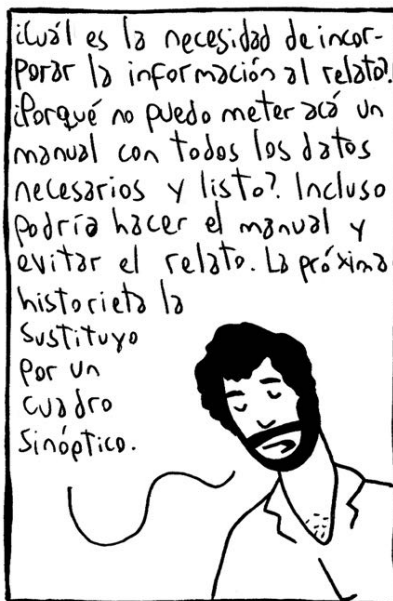 ¿Cuál es la necesidad de incor-
porar la información al relato?
¿Porqué no puedo meter acá un
manual con todos los datos
necesarios y listo? Incluso
podría hacer el manual y
evitar el relato. La próxima
historieta la
sustituyo
por un
cuadro
sinóptico.